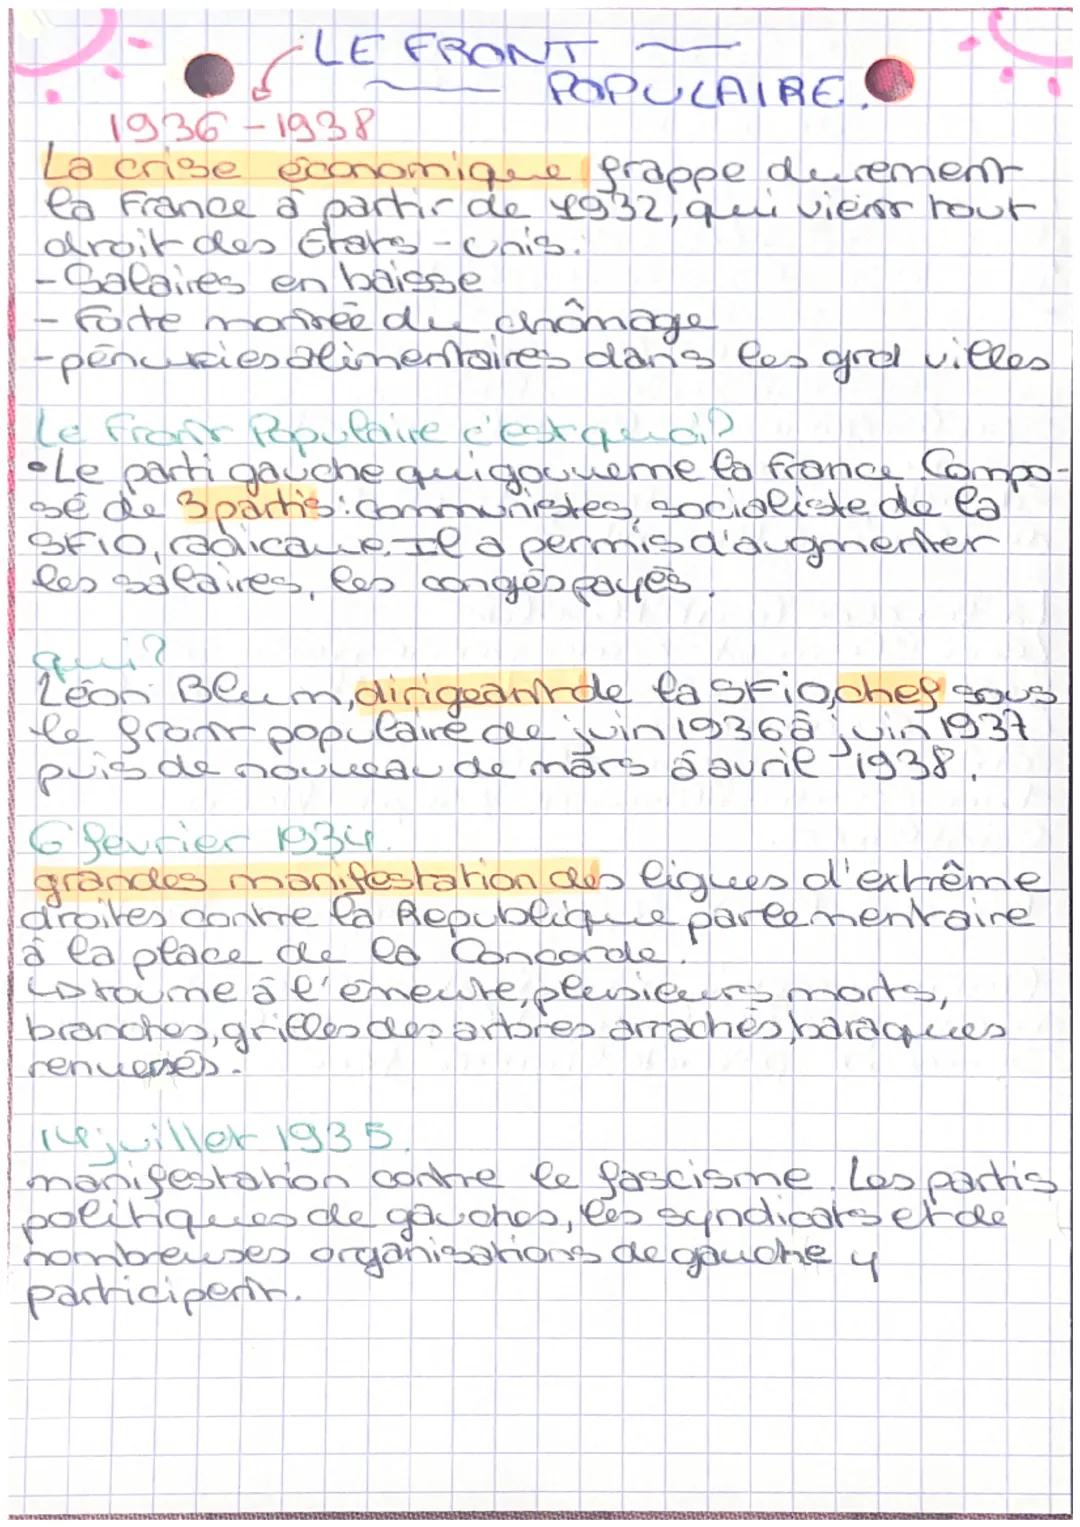 LE FRONT
POPULAIRE.
1936-1938
La crise économique frappe durement
la France à partir de 1932, qui vient tout
droit des États-unis.
- Salaires en baisse
- forte montée du chômage
- pénuries alimentaires dans les grd villes
Le Front Populaire c'est quoi?
• Le parti gauche qui gouverne la France. Compo-
sé de 3 partis : communistes, socialiste de la
SFIO, radicaux. Il a permis d'augmenter
les salaires, les congés payés.
qui?
Léon Blum, dirigeant de la SFiO, chef sous
le front populaire de juin 1936 à juin 1937
puis de nouveau de mars à avril 1938.
6 fevrier 1934.
grandes manifestation des ligues d'extrême
droites contre la Republique parlementaire
à la place de la Concorde.
↳ tourne à l'émeute, plusieurs morts,
branches, grilles des arbres arrachés, baraques
renversés.
14 juillet 1935.
manifestation contre le fascisme. Les partis
politiques de gauches, les syndicats et de
nombreuses organisations de gauche y
participent.